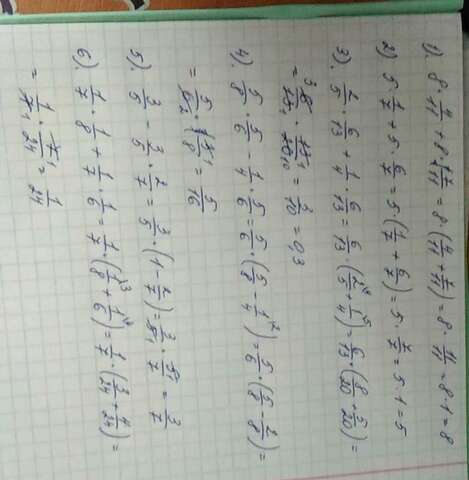 1). 8 · 4/11 + 8 · 7/11 = 8 · (4/11 + 7/11) = 8 · 11/11 = 8 · 1 = 8
2) 5 · 1/7 + 5 · 6/7 = 5 · (1/7 + 6/7) = 5 · 7/7 = 5 · 1 = 5
3). 2/5 · 6/13 + 1/4 · 6/13 = 6/13 · (2/5 + 1/4) = 6/13 · (8/20 + 5/20) =
= 3/10 = 0,3
4). 5/8 · 5/6 - 1/4 · 5/6 = 5/6 · (5/8 - 1/4) = 5/6 · (5/8 - 2/8) =
= 5/16
5). 3/5 - 3/5 · 2/7 = 3/5 · (1 - 2/7) = 3/5 · 5/7 = 3/7
6). 1/7 · 1/8 + 1/7 · 1/6 = 1/7 · (1/8 + 1/6) = 1/7 · (3/24 + 4/24) =
= 1/7 · 7/24 = 1/24